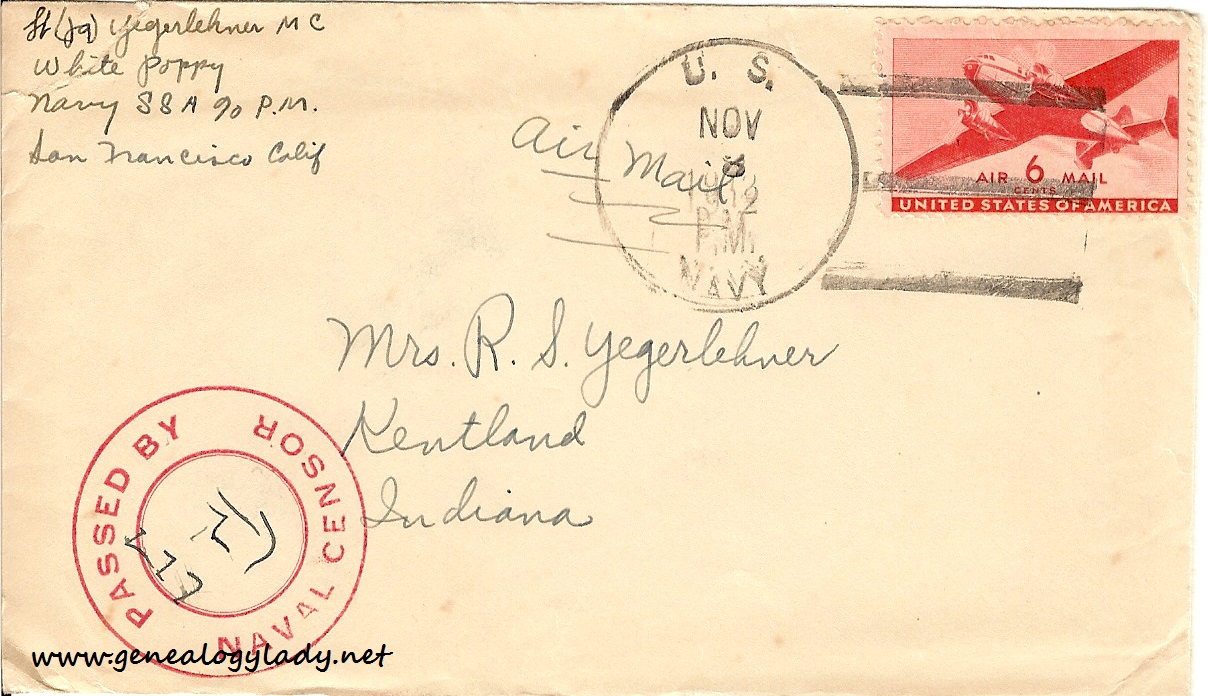 Lt (jg) Yegerlehner M C
White Poppy
Navy S S A % P.M.
San Francisco Calif
Air Mail
U. S.
NOV
P.M.
NAVY
AIR 6 MAIL
CENTS
UNITED STATES OF AMERICA
Mrs. R. S. Yegerlehner
Kentland
Indiana
PASSED BY NAVAL CENSOR
www.genealogylady.net